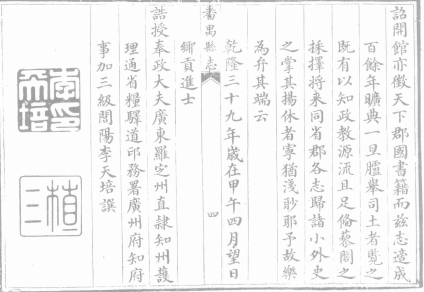 詔開館亦徵天下郡國書籍而茲志遂成
百餘年曠典一旦臚舉司土者覽之
既有以知政教源流且足備藝閣之
採擇將来同省郡各志歸諸小外史
之掌其揚休者寧猶淺尠耶予故樂
為弁其端云
乾隆三十九年歲在甲午四月望日
鄉貢進士
番禺縣志
四
誥授奉政大夫廣東羅定州直隸知州護
理通省糧驛道印務署廣州府知府
事加三級閩陽李天培譔
李印天培
三植